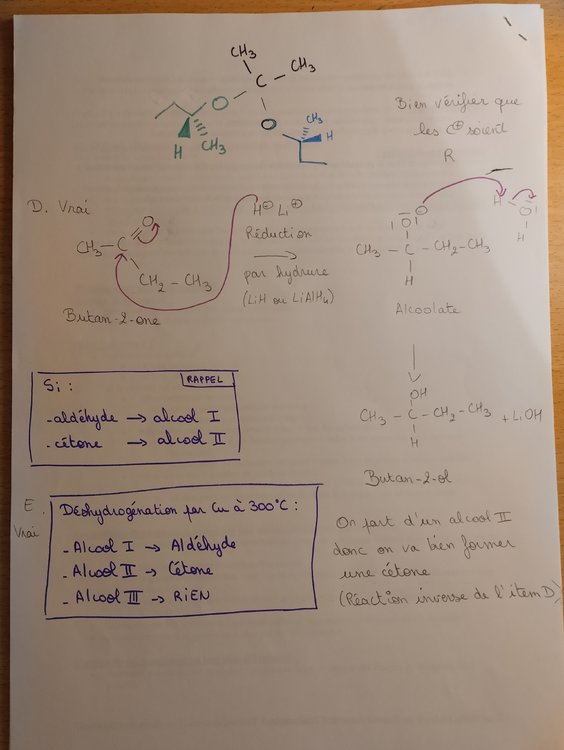 CH₃
C - CH₃
O
O
H CH₃
CH₃
H
Bien vérifier que
les C⊕ soient
R
D. Vrai
CH₃ - C = O
CH₂ - CH₃
Butan-2-one
H⊖ Li⊕
Réduction
par hydrure
(LiH ou LiAlH₄)
O⊖
CH₃ - C - CH₂ - CH₃
H
Alcoolate
H - O
H
OH
CH₃ - C - CH₂ - CH₃ + LiOH
H
Butan-2-ol
RAPPEL
Si :
- aldéhyde → alcool I
- cétone → alcool II
E. Vrai
Déshydrogénation par Cu à 300°C :
- Alcool I → Aldéhyde
- Alcool II → Cétone
- Alcool III → RiEN
On part d'un alcool II
donc on va bien former
une cétone
(Réaction inverse de l'item D)